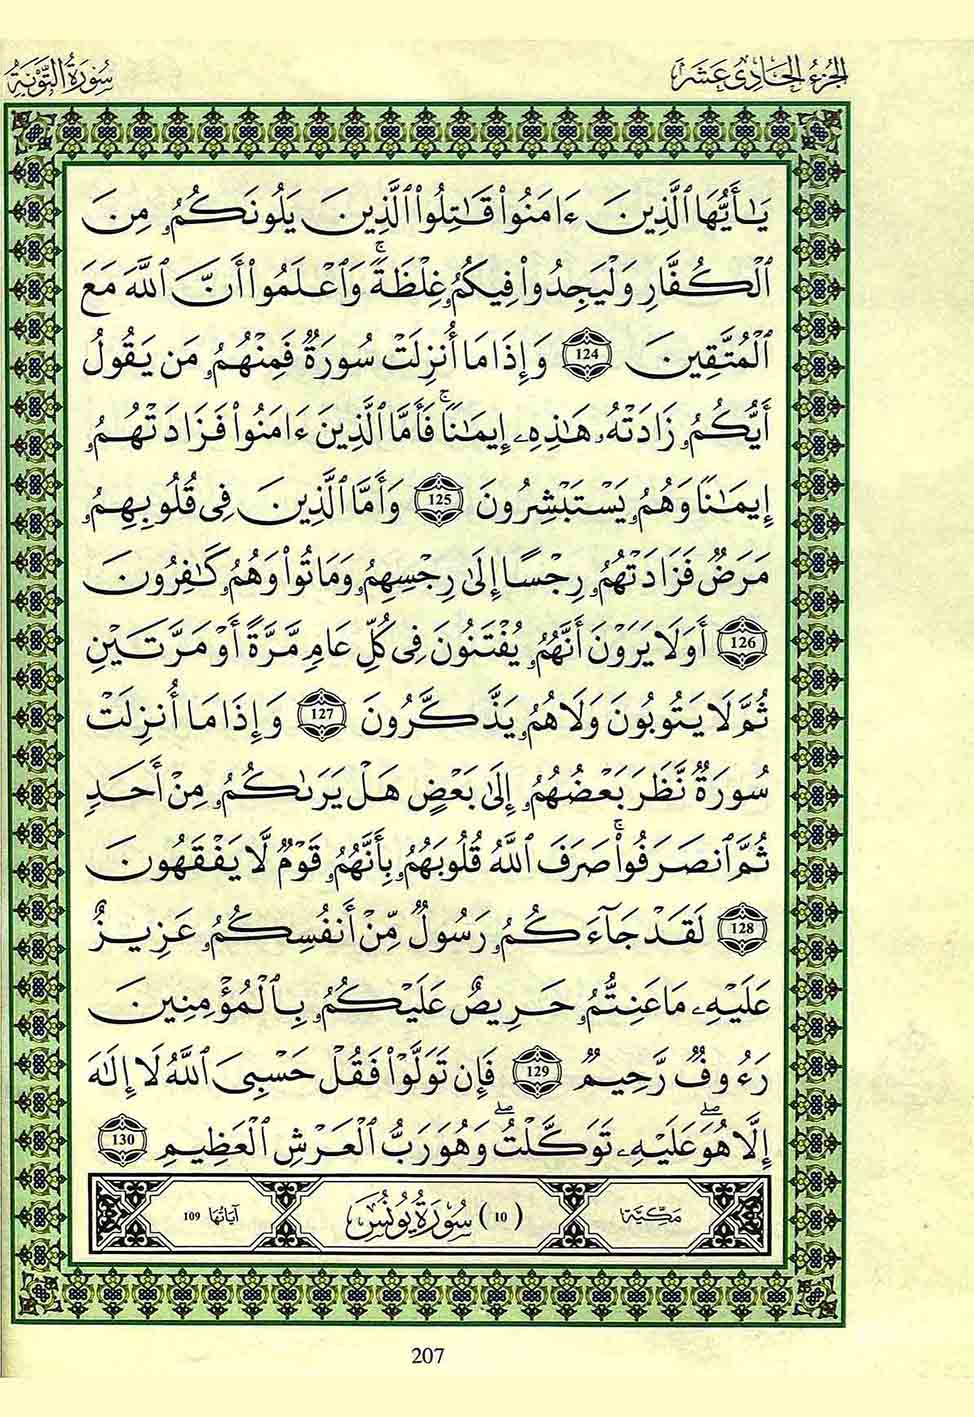 الجزء الحادي عشر
سورة التوبة
يَٰأَيُّهَا ٱلَّذِينَ ءَامَنُوا۟ قَٰتِلُوا۟ ٱلَّذِينَ يَلُونَكُمُۥ مِنَ
ٱلْكُفَّارِ وَلْيَجِدُوا۟ فِيكُمُۥ غِلْظَةًۚ وَٱعْلَمُوٓا۟ أَنَّ ٱللَّهَ مَعَ
ٱلْمُتَّقِينَ 124 وَإِذَا مَا أُنزِلَتْ سُورَةٌ فَمِنْهُمُۥ مَن يَقُولُ
أَيُّكُمُۥ زَادَتْهُۥ هَٰذِهِۦ إِيمَٰنًاۚ فَأَمَّا ٱلَّذِينَ ءَامَنُوا۟ فَزَادَتْهُمُۥ
إِيمَٰنًا وَهُمُۥ يَسْتَبْشِرُونَ 125 وَأَمَّا ٱلَّذِينَ فِى قُلُوبِهِمُۥ
مَرَضٌ فَزَادَتْهُمُۥ رِجْسًا إِلَىٰ رِجْسِهِمُۥ وَمَاتُوا۟ وَهُمُۥ كَٰفِرُونَ
126 أَوَلَا يَرَوْنَ أَنَّهُمُۥ يُفْتَنُونَ فِى كُلِّ عَامٍ مَّرَّةً أَوْ مَرَّتَيْنِ
ثُمَّ لَا يَتُوبُونَ وَلَا هُمُۥ يَذَّكَّرُونَ 127 وَإِذَا مَا أُنزِلَتْ
سُورَةٌ نَّظَرَ بَعْضُهُمُۥ إِلَىٰ بَعْضٍ هَلْ يَرَىٰكُمُۥ مِنْ أَحَدٍ
ثُمَّ ٱنصَرَفُوا۟ۚ صَرَفَ ٱللَّهُ قُلُوبَهُمُۥ بِأَنَّهُمُۥ قَوْمٌ لَّا يَفْقَهُونَ
128 لَقَدْ جَآءَكُمُۥ رَسُولٌ مِّنْ أَنفُسِكُمُۥ عَزِيزٌ
عَلَيْهِۦ مَا عَنِتُّمُۥ حَرِيصٌ عَلَيْكُمُۥ بِٱلْمُؤْمِنِينَ
رَءُوفٌ رَّحِيمٌ 129 فَإِن تَوَلَّوْا۟ فَقُلْ حَسْبِىَ ٱللَّهُ لَا إِلَٰهَ
إِلَّا هُوَۖ عَلَيْهِۦ تَوَكَّلْتُۖ وَهُوَ رَبُّ ٱلْعَرْشِ ٱلْعَظِيمِ 130
مكية (10) سورة يونس آياتها 109
207